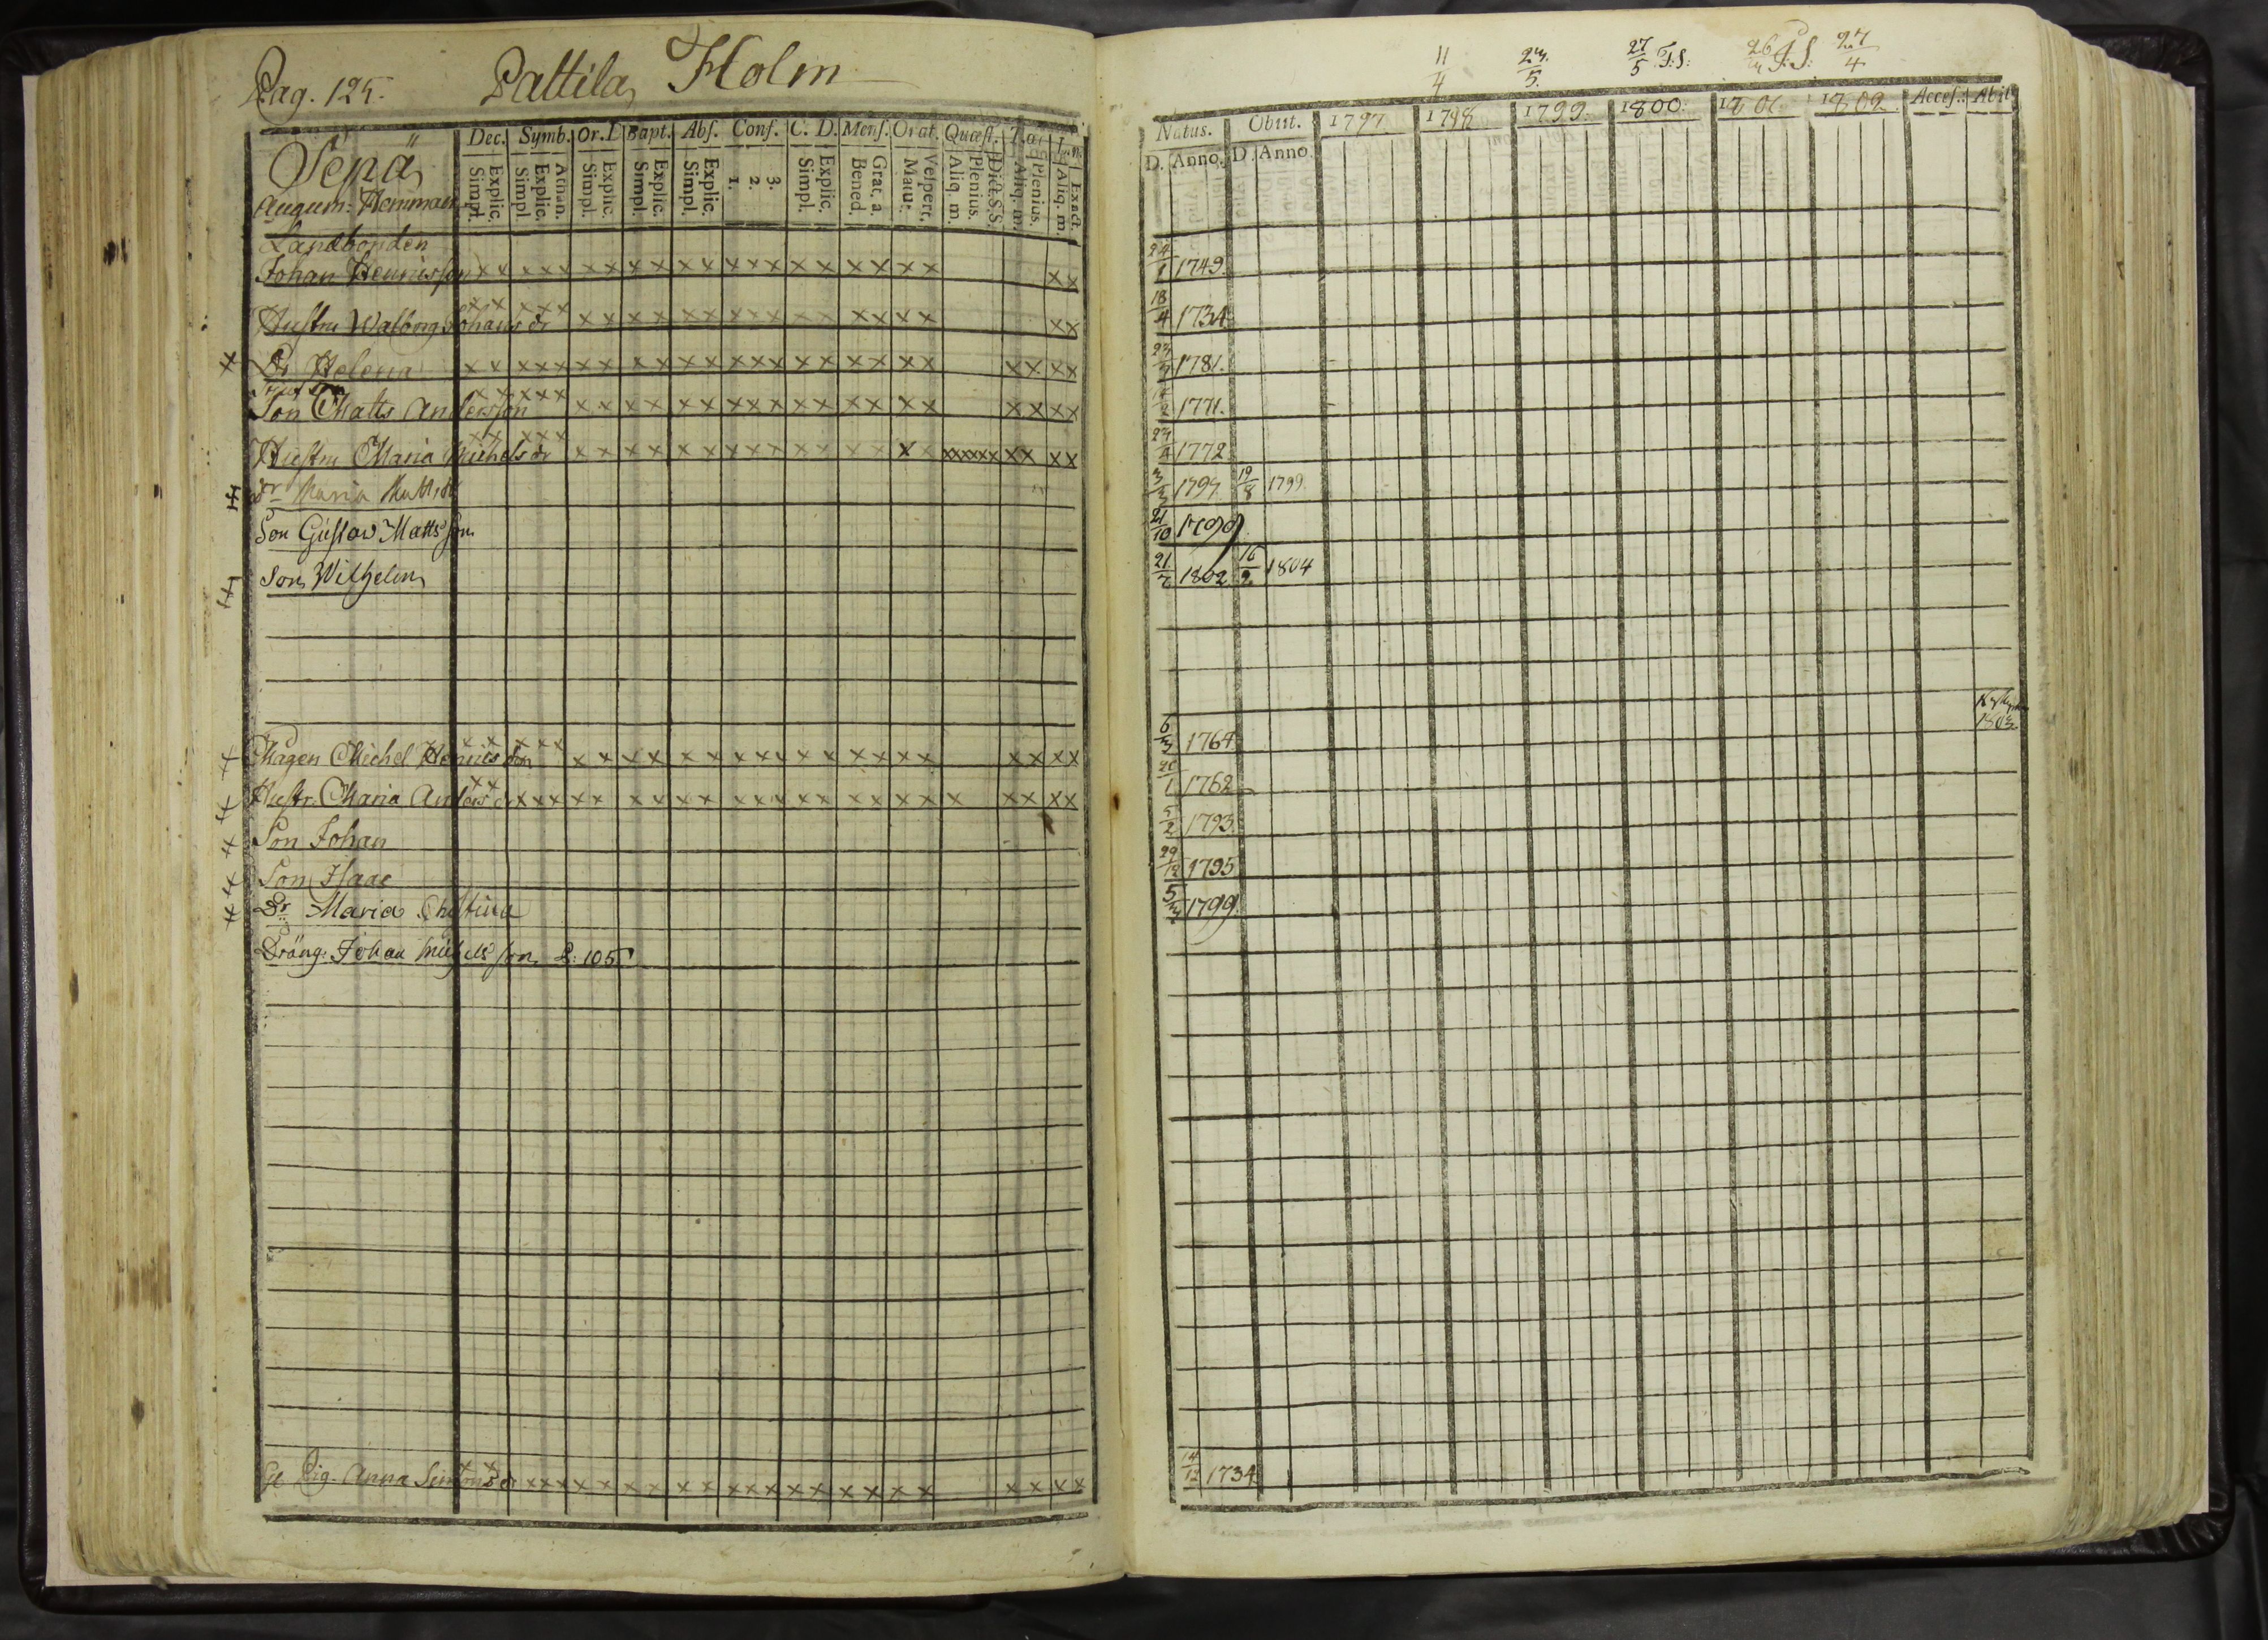 Pag. 125.
Pattila Holm
Sepä
Augum: Hemman
Dec. Symb. Or. D Bapt. Abs. Conf. C. D. Mens. Orat. Quæst.
Explic. Simpl.
Athan. Explic. Simpl.
Explic. Simpl.
Explic. Simpl.
Explic. Simpl.
3. 2. 1.
Explic. Simpl.
Grat. a. Bened.
Vespert. Matut.
Dict. S.S. Plenius. Aliq. m.
Plenius. Aliq. m.
Exact. Aliq. m.
Landbonden
Johan Hennisson x x x x x x x x x x x x x x x x x x x x x x
Hustru Walborg Johans dr x x x x x x x x x x x x x x x x x x x x x x
Dr Helena x x x x x x x x x x x x x x x x x x x x x x x x
Son Matts Andersson x x x x x x x x x x x x x x x x x x x x x x x x
Hustru Maria Michels dr x x x x x x x x x x x x x x x x x x x x xxxxxx xx xx
Dr Maria Matts dr
Son Gustav Matts son
Son Wilhelm
Mågen Michel Hennis son x x x x x x x x x x x x x x x x x x x x x x x x
Hustr. Maria Anders dr x x x x x x x x x x x x x x x x x x x x x x x x x
Son Johan
Son Isaac
Dr Maria Christina
Dräng. Johan Michels son P: 105
Pig. Anna Simons dr x x x x x x x x x x x x x x x x x x x x x x x x
11/4 27/5 T.S. 27/4
Natus. Obiit. 1797 1798 1799. 1800. 1801. 1802. Access. Abit.
D. Anno. D. Anno.
1749.
18/4 1734
1781.
1771.
1772
1797 19/8 1799
21/10 1799
21/7 1802 16/2 1804
1803
6/3 1764
1762
5/2 1793
29/12 1795
1799.
14/12 1734